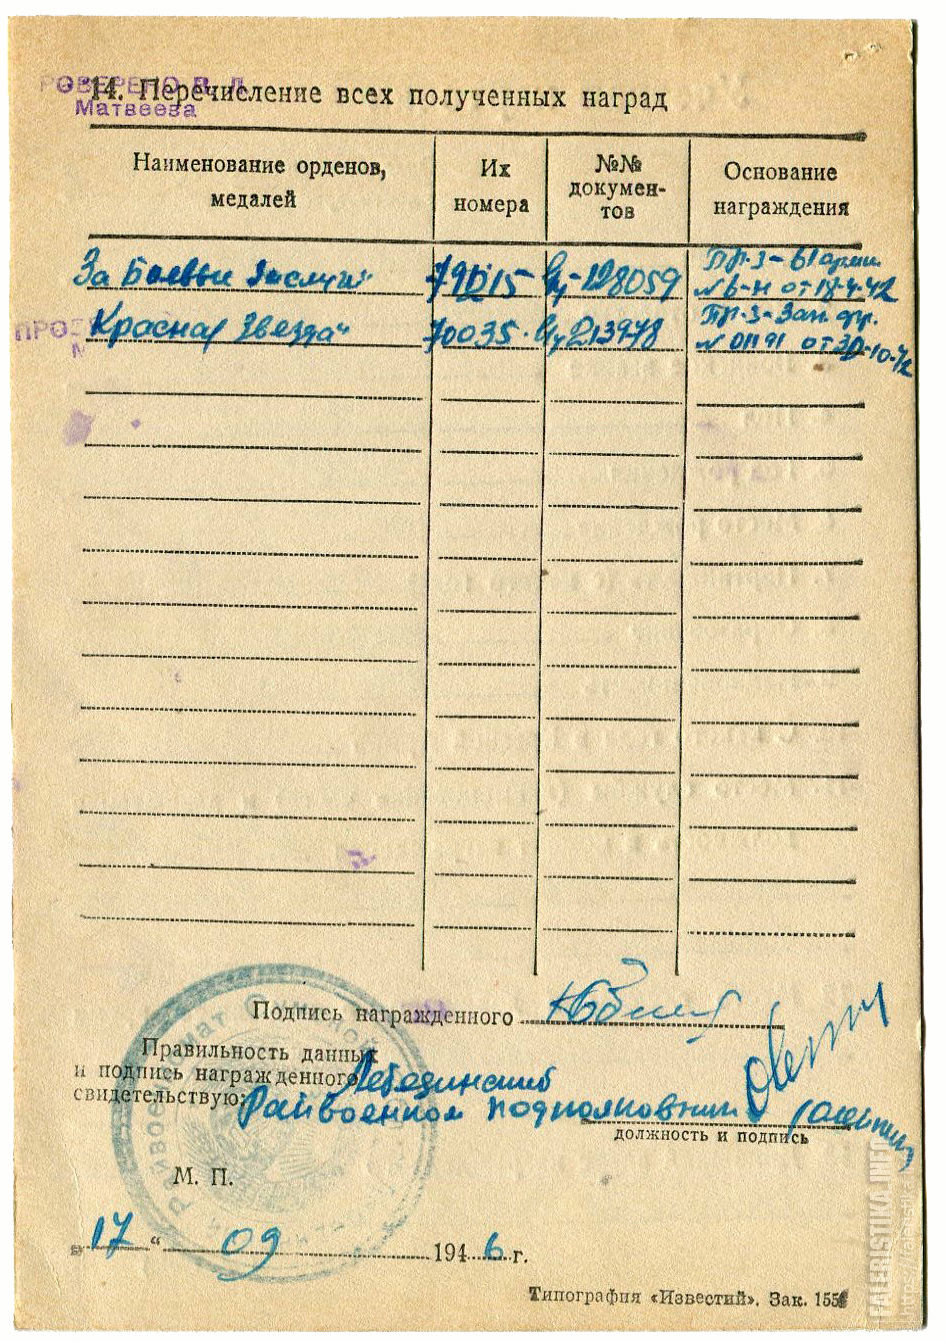 РОВЕРЕНО
Матвеева
14. Перечисление всех полученных наград
Наименование орденов, медалей
Их номера
№№ докумен-тов
Основание награждения
За Боевые Заслуги"
79015
128059
Пр-з-61 арми
№6-н от 18-4-42
Красная Звезда"
70035
213978
Пр-з-Зап. фр.
№ 01191 от 30-10-42
Подпись награжденного
Правильность данных
и подпись награжденного
свидетельствую:
Лебединский
Райвоенком подполковник
должность и подпись
М. П.
„17“ 09 1946 г.
Типография «Известий». Зак. 155
FALERISTIKA.INFO